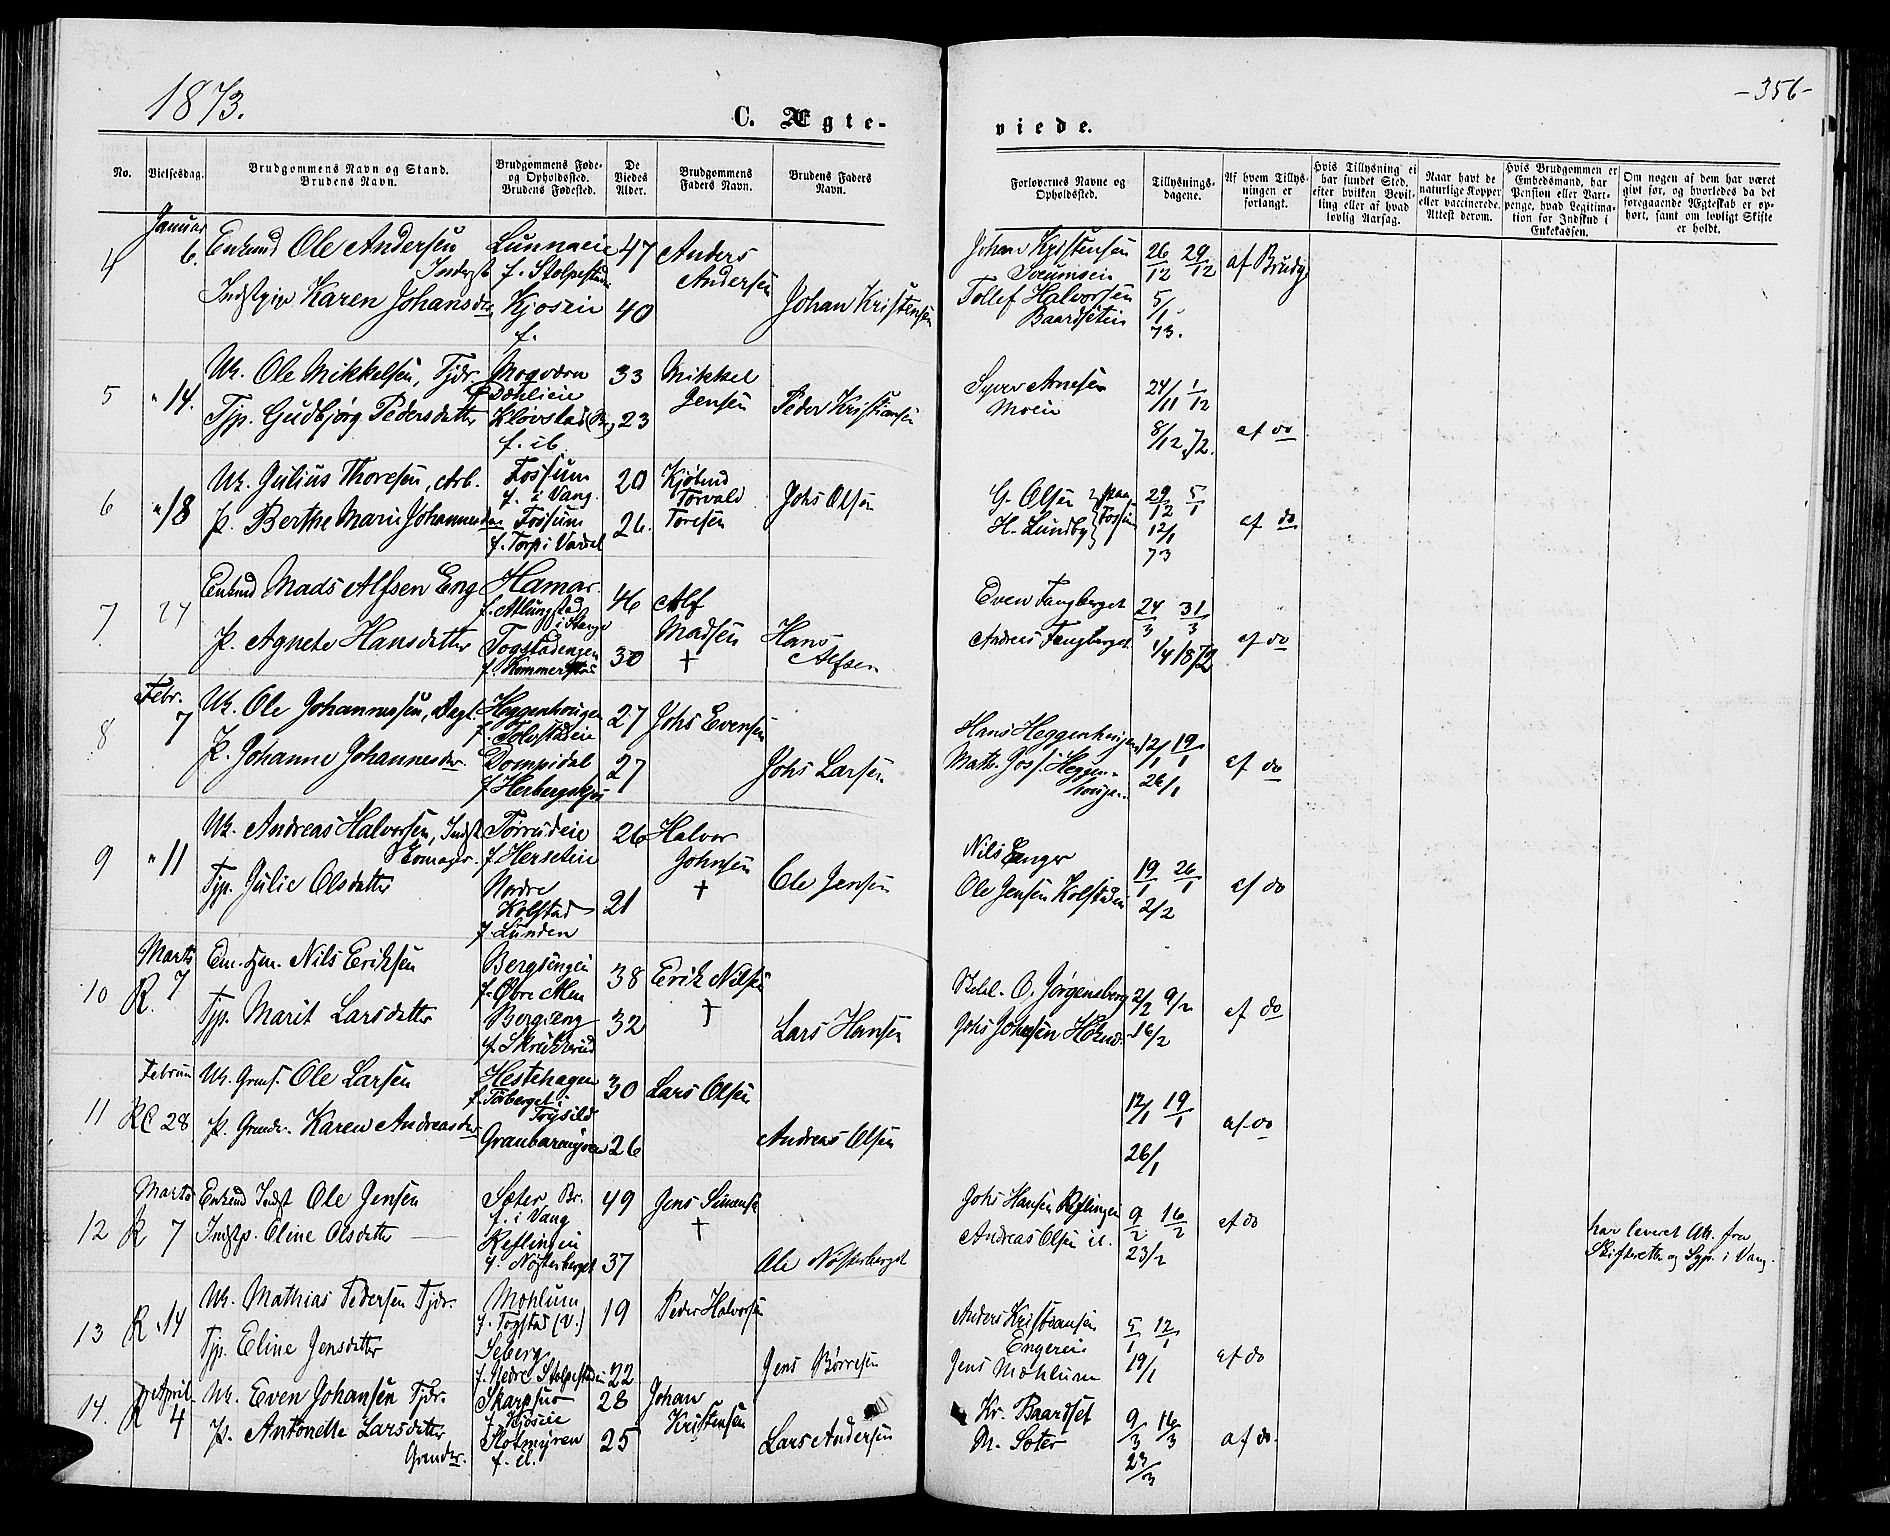 1873.
C. Ægte-
viede.
-356-
No.
Vielsesdag.
Brudgommens Navn og Stand.
Brudens Navn.
Brudgommens Føde-
og Opholdssted.
Brudens Fødested.
De
Viedes
Alder.
Brudgommens
Faders Navn.
Brudens Faders
Navn.
Forlovernes Navne og
Opholdssted.
Tillysnings-
dagene.
Af hvem Tillys-
ningen er
forlangt.
Hvis Tillysning ei
har fundet Sted,
efter hvilken Bevil-
ling eller af hvad
lovlig Aarsag.
Naar havt de
naturlige Kopper
eller vaccinerede.
Attest derom.
Hvis Brudgommen er
Embedsmand, har
Pension eller Vart-
penge, hvad Legitima-
tion for Indskud i
Enkekassen.
Om nogen af dem har været
gift før, og hvorledes da det
foregaaende Ægteskab er op-
hørt, samt om lovligt Skifte
er holdt.
Januar
4 6. Enkemd Ole Andersen
Inderst
Lunnaeie
f. Stolpestad
47 Anders
Andersen
Karen Johansd.
Kjosein
f.
40
Johan Kristensen
Johan Kristensen
Tollef Halvorsen
Baardsetein
26/12 29/12
5/1
73.
af Brudg.
5 " 14. Uk. Ole Mikkelsen, Tjdr.
Mogværn
33 Mikkel
Jensen
Tjp. Gudbjørg Pedersdatter
Kløvstad (Br.)
f. ib
23
Peder Kristiansen
Syver Arnesen
Moein
24/11 1/12
8/12 72.
af do
6 " 18 Uk. Julius Thoresen, Arb.
Fossum
f. i Vang.
20 Kjøbmd
Torvald
Toresen
P. Berthe Marie Johannesdr
Fossum
f. Torp i Vardal
26.
Johs Olsen
G. Olsen
H. Lundby
Fossum
29/12 5/1
12/1
73
af do
7 24 Enkemd Mads Alfsen Eng
Hamar.
f. Atlungstad
i Stange
46 Alf
Madsen
†
P. Agnete Hansdatter
Togstadengen
30
Hans
Alfsen
Even Fangberget
Andreas Fangberget
24/3 31/3
1/4 1872
af do
Febr.
8 7 Uk. Ole Johannessen, Dagl.
Heggenhougen
f. Tolvstadeie
27 Johs Evensen
P. Johanne Johannesdr.
Dompidal
27
Johs Larsen
Hans Heggenhougen
Math. Jos. Heggen-
hougen
12/1 19/1
26/1
af do
9 " 11 Uk. Andreas Halvorsen, Indst.
Skomager.
Torrudeie
f. Hersetein
26 Halvor
Johnsen
†
Tjp. Julie Olsdatter
Nordre
Kolstad
f. Lunden
21
Ole Jensen
Nils Enger
Ole Jensen Kolstadein
19/1 26/1
2/2
af do
Marts
10 R. 7 Nils Eriksen
Bergsengein
f. Øvre Alm
38 Erik Nilsen
†
Tjp. Marit Larsdatter
Bergseng
f. Skrukkerud
32
Lars Hansen
O. Jørgensberg
Johs Johnsen
2/2 9/2
16/2
af do
Februar
11 28 Uk. Grmd. Ole Larsen
Hestehagen
f. Torberget i
Trysild
30 Lars Olsen
P. Grmdr. Karen Andreasdr
Granbarmyren
26
Andreas Olsen
12/1 19/1
26/1
af do
Marts
12 R 7 Enkemd Indst Ole Jensen
Sæter Br.
f. i Vang
49 Jens Simensen
†
Indstp. Oline Olsdatter
Keflingein
f. Nøsterberget
37
Ole Nøsterberget
Johs Hansen Keflingen
Andreas Olsen
9/2 16/2
23/2
af do
har leveret Att. fra
Skifteretten og Spr. i Vang.
13 R " 14 Uk. Mathias Pedersen Tjdr.
Mohlum
f. Togstad (V.)
19 Peder Halvorsen
Tjp. Eline Jensdatter
Seberg
f. Nedre Stolpestadein
22
Jens Børresen
Anders Kristiansen
Engerein
Jens Mohlum
5/1 12/1
19/1
af do
April
14. R 4 Uk. Even Johansen Tjdr.
Skarpsno
f. Kjosein
28 Johan
Kristensen
P. Antonette Larsdatter
Grmdr.
Slotmyren
f. il.
25
Lars Andersen
Kr. Baardset
M. Soter
9/3 16/3
23/3
af do